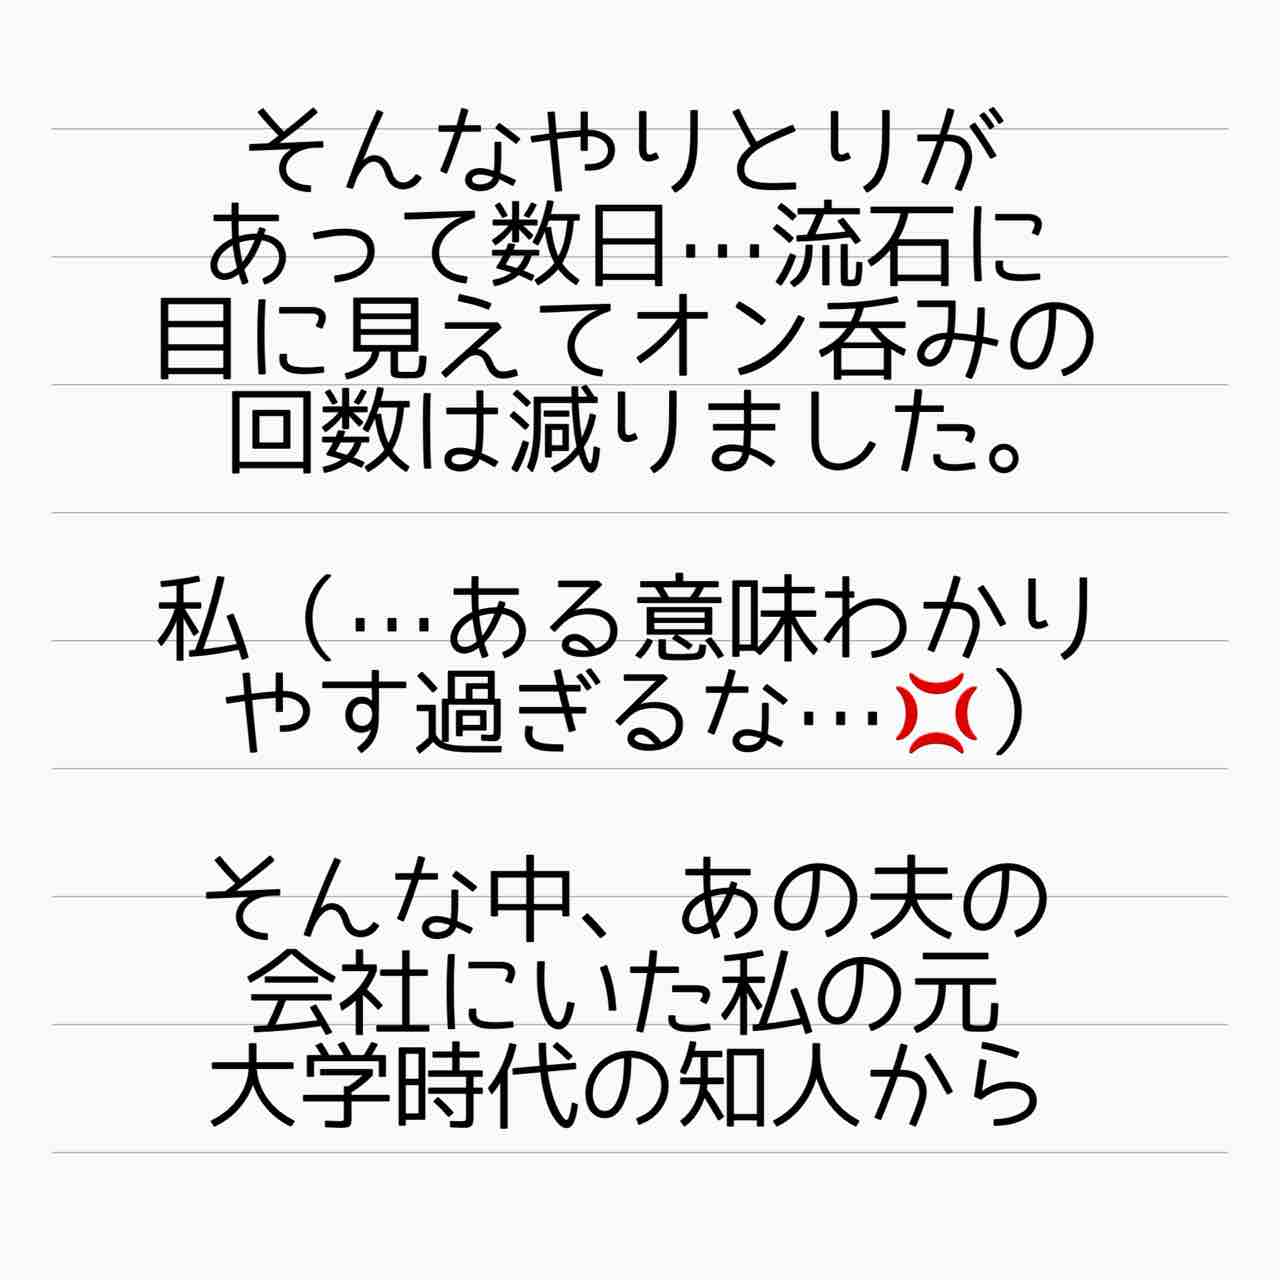 そんなやりとりが
あって数日…流石に
目に見えてオン呑みの
回数は減りました。
私（…ある意味わかり
やす過ぎるな…💢）
そんな中、あの夫の
会社にいた私の元
大学時代の知人から